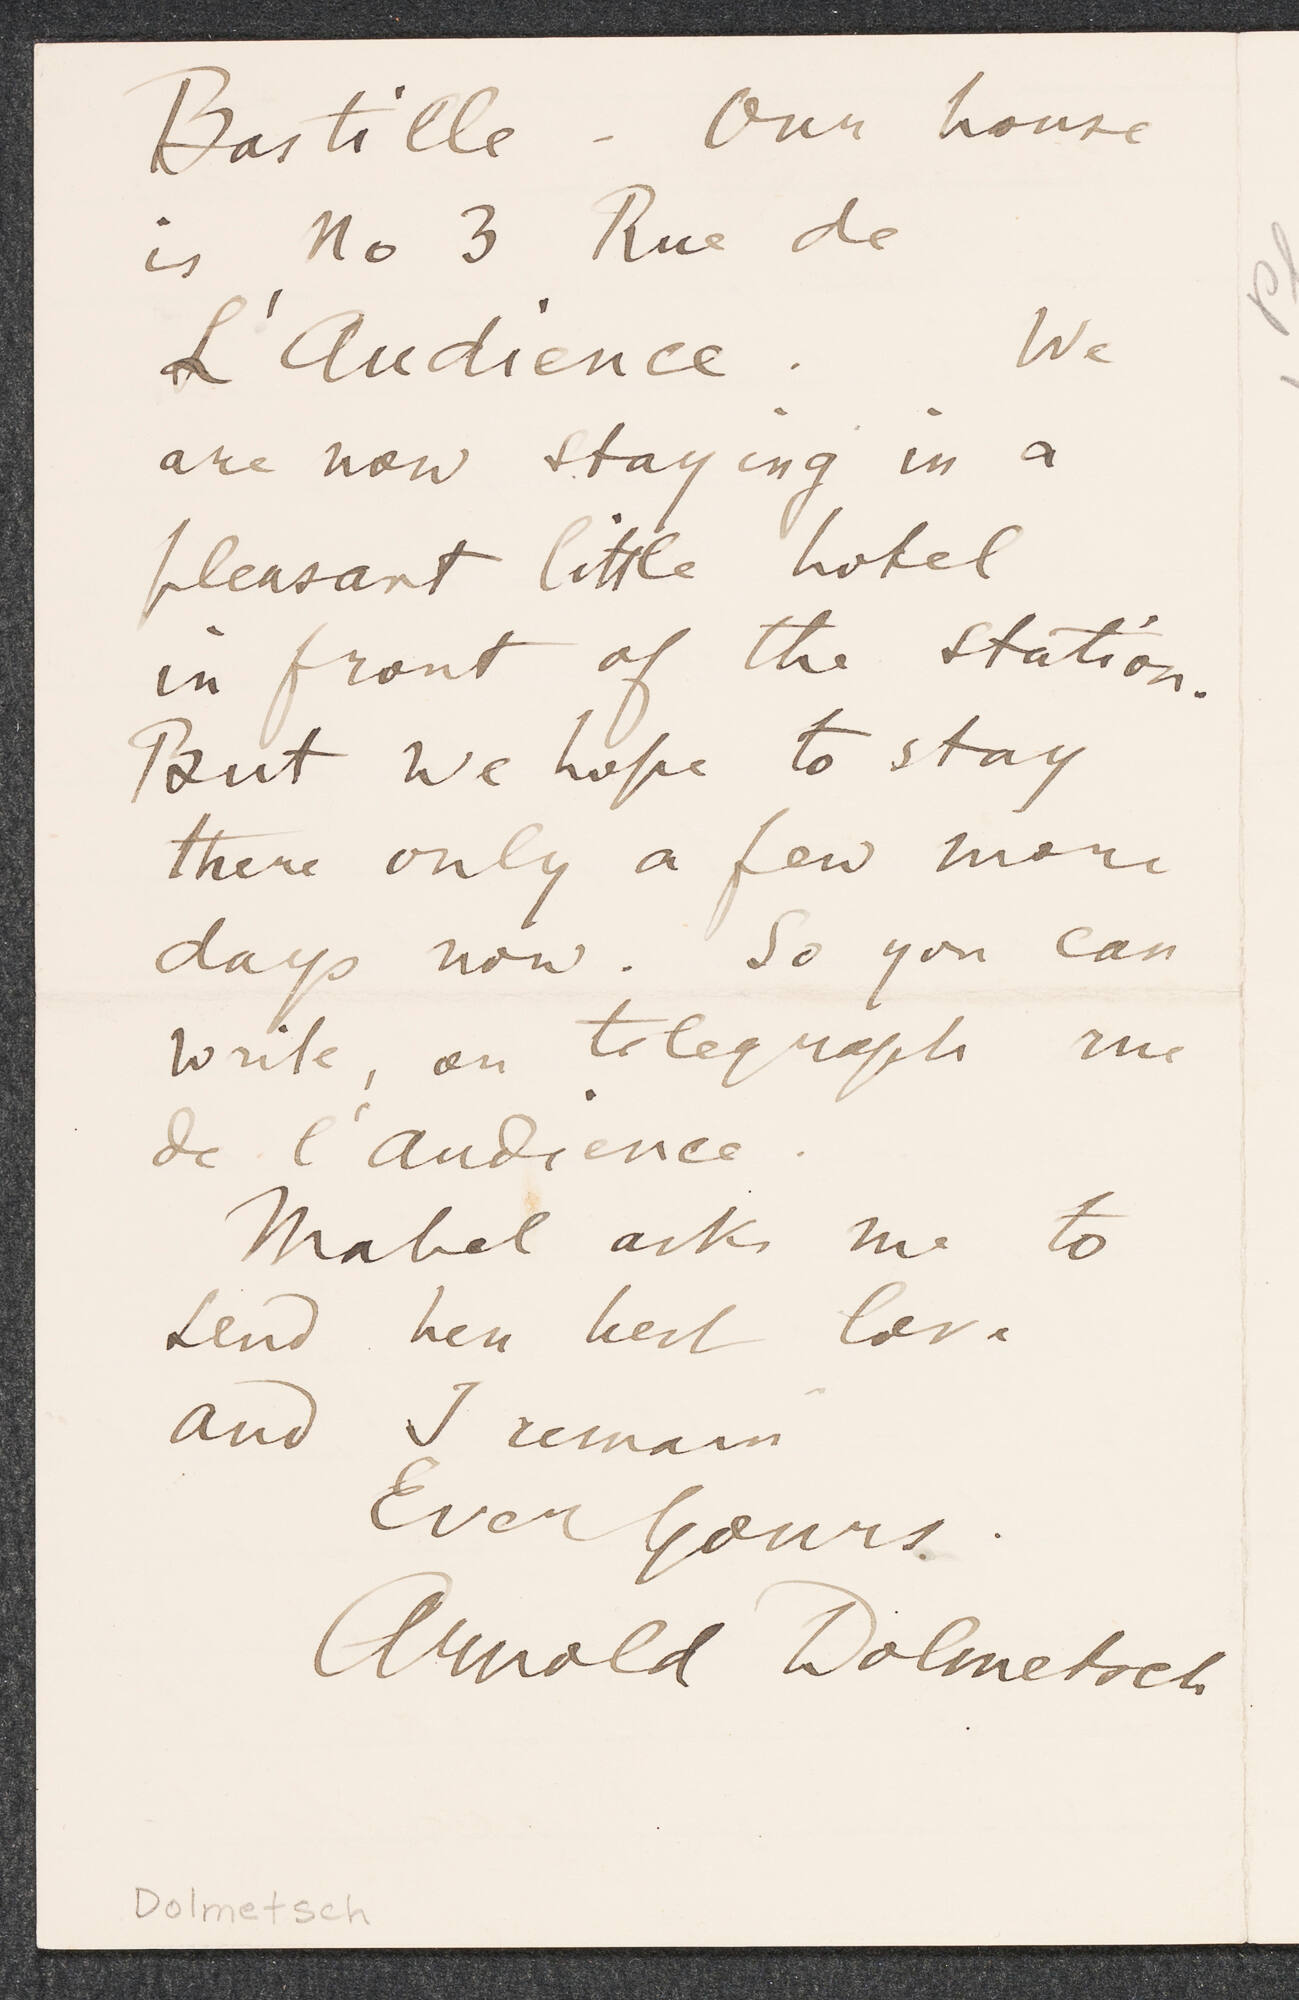 Bastille - Our house
is No 3 Rue de
L'Audience. We
are now staying in a
pleasant little hotel
in front of the station.
But we hope to stay
there only a few more
days now. So you can
write, or telegraph rue
de l'audience.
Mabel asks me to
send her best love
and I remain
Ever Yours.
Arnold Dolmetsch
Dolmetsch